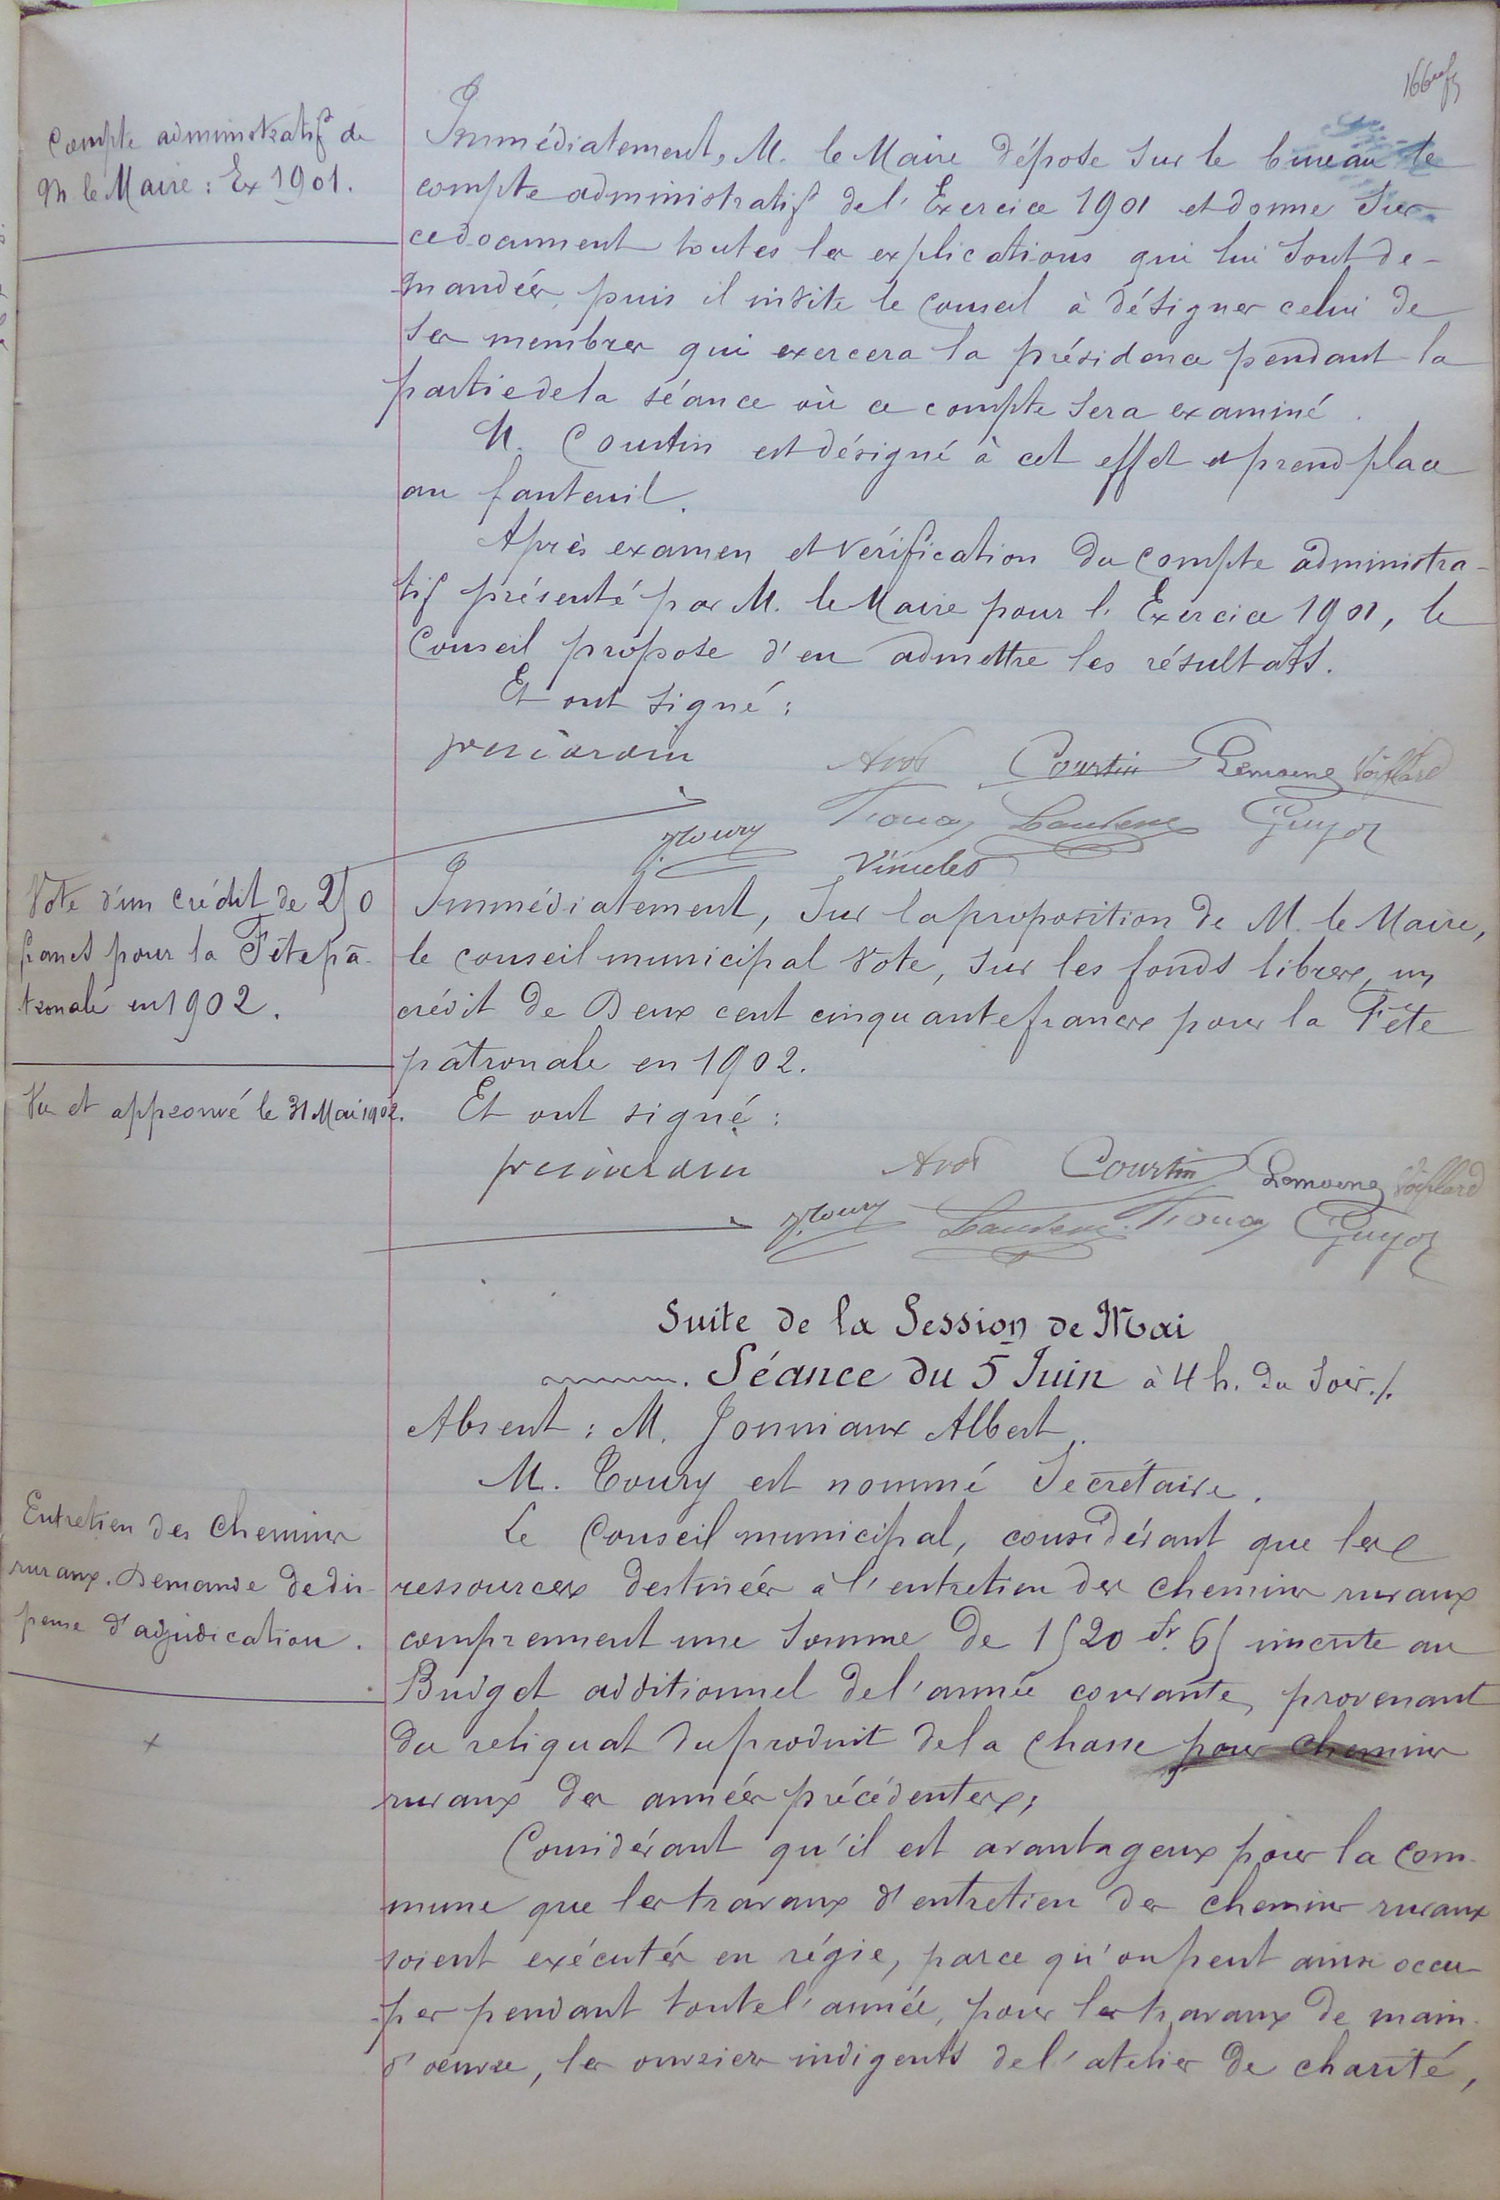 Compte administratif de
M. le Maire : Ex 1901.
Immédiatement, M. le Maire dépose sur le bureau le
compte administratif de l'Exercice 1901 et donne sur
ce document toutes les explications qui lui sont de-
mandées, puis il invite le Conseil à désigner celui de
ses membres qui exercera la présidence pendant la
partie de la séance où ce compte sera examiné.
M. Courtin est désigné à cet effet et prend place
au fauteuil.
Après examen et vérification du compte administra-
tif présenté par M. le Maire pour l'Exercice 1901, le
Conseil propose d'en admettre les résultats.
Et ont signé :
Courtin Lemoine
Guyot
Vote d'un crédit de 250
francs pour la Fête pa-
tronale en 1902.
Immédiatement, sur la proposition de M. le Maire,
le conseil municipal vote, sur les fonds libres, un
crédit de Deux cent cinquante francs pour la Fête
patronale en 1902.
Vu et approuvé le 31 Mai 1902.
Et ont signé :
Courtin Lemoine
Guyot
Suite de la Session de Mai
Séance du 5 Juin à 4 h. du soir./.
Absent : M. Jonniaux Albert.
M. Toury est nommé Secrétaire.
Entretien des Chemins
ruraux. Demande de dis-
pense d'adjudication.
Le Conseil municipal, considérant que les
ressources destinées à l'entretien des chemins ruraux
comprennent une somme de 1520 fr. 65 inscrite au
Budget additionnel de l'année courante, provenant
du reliquat du produit de la Chasse pour chemins
ruraux des années précédentes ;
Considérant qu'il est avantageux pour la com-
mune que les travaux d'entretien des chemins ruraux
soient exécutés en régie, parce qu'on peut ainsi occu-
per pendant toute l'année, pour les travaux de main
d'œuvre, les ouvriers indigents de l'atelier de charité,